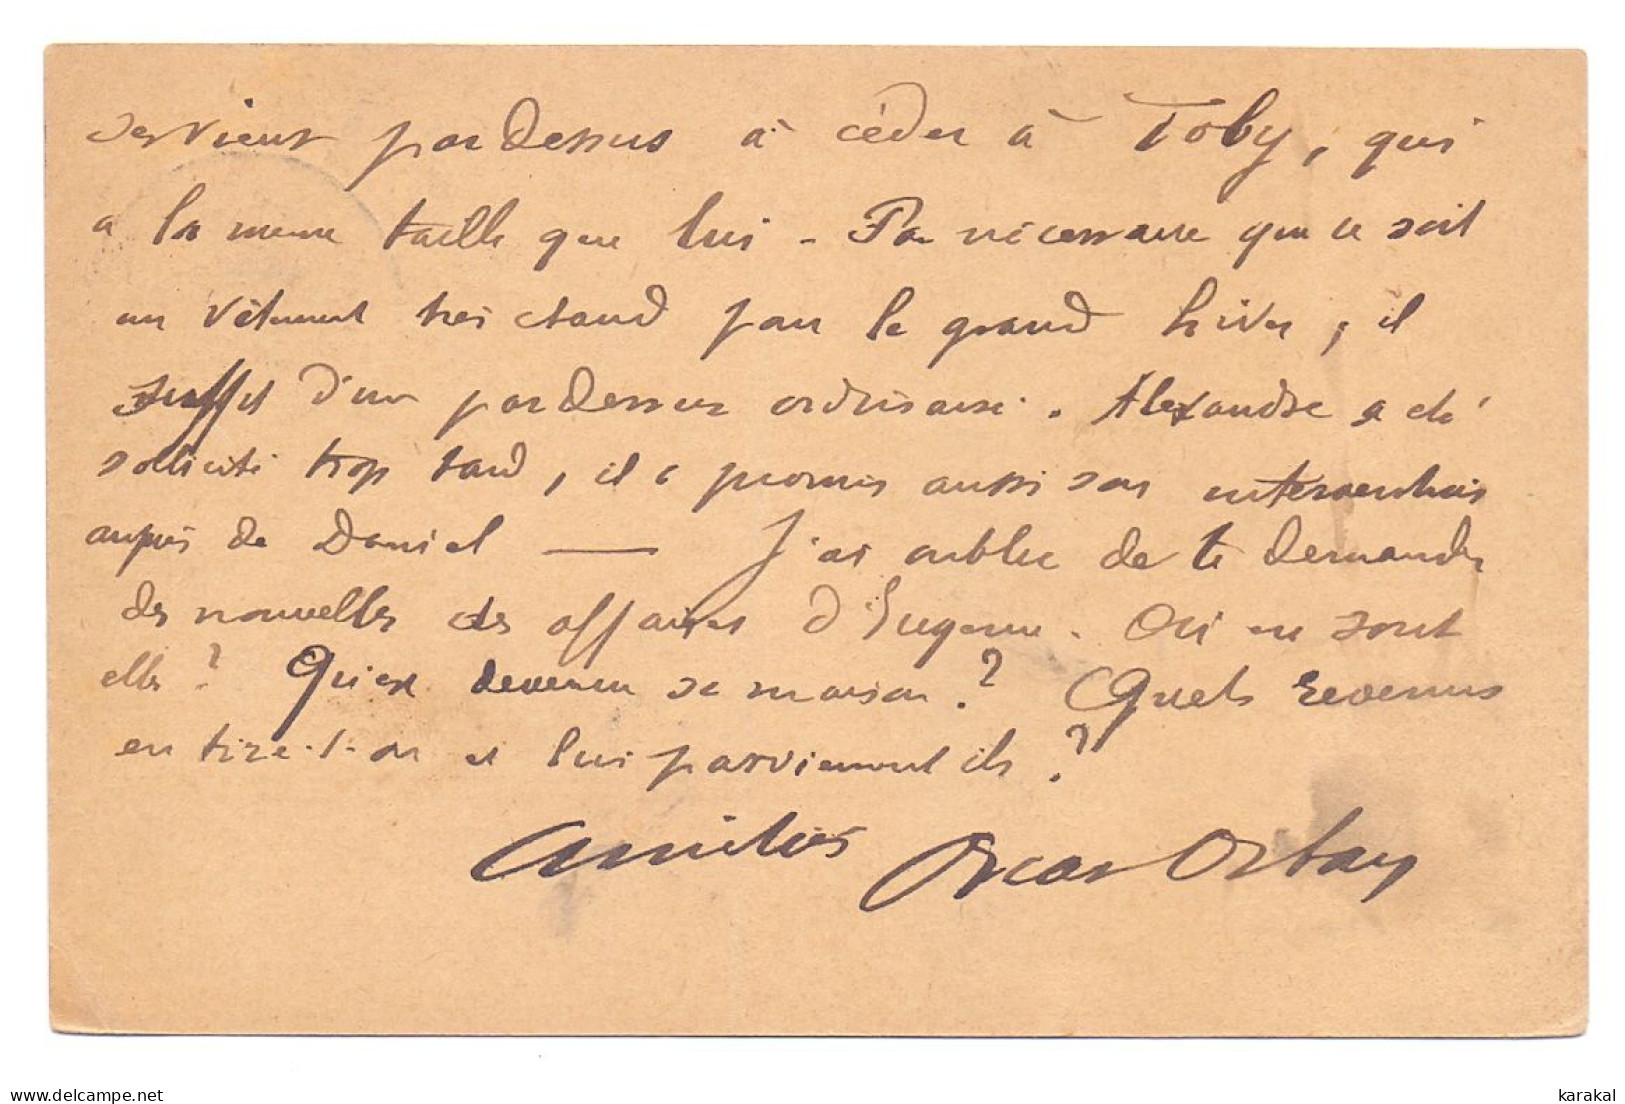 ses vieux pardessus à céder à Toby, qui
a la même taille que lui - Pas nécessaire que ce soit
un vêtement très chaud pour le grand hiver, il
suffit d'un pardessus ordinaire. Alexandre a été
sollicité trop tard, il a promis aussi son intervention
auprès de Daniel — J'ai oublié de te demander
des nouvelles des affaires d'Eugène. Où en sont
elles? Qu'est devenue sa maison? Quels revenus
en tire-t-on et lui parviennent ils?
Amitiés Oscar
karakal